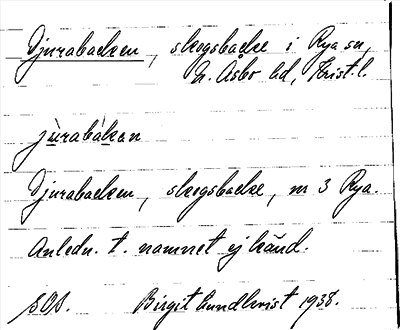 Djurabacken, skogsbacke i Rya sn,
N. Åsbo hd, Krist. l.
jùrabàkan
Djurabacken, skogsbacke, nr 3 Rya.
Anledn. t. namnet ej känd.
SOS. Birgit Lundkvist 1938.